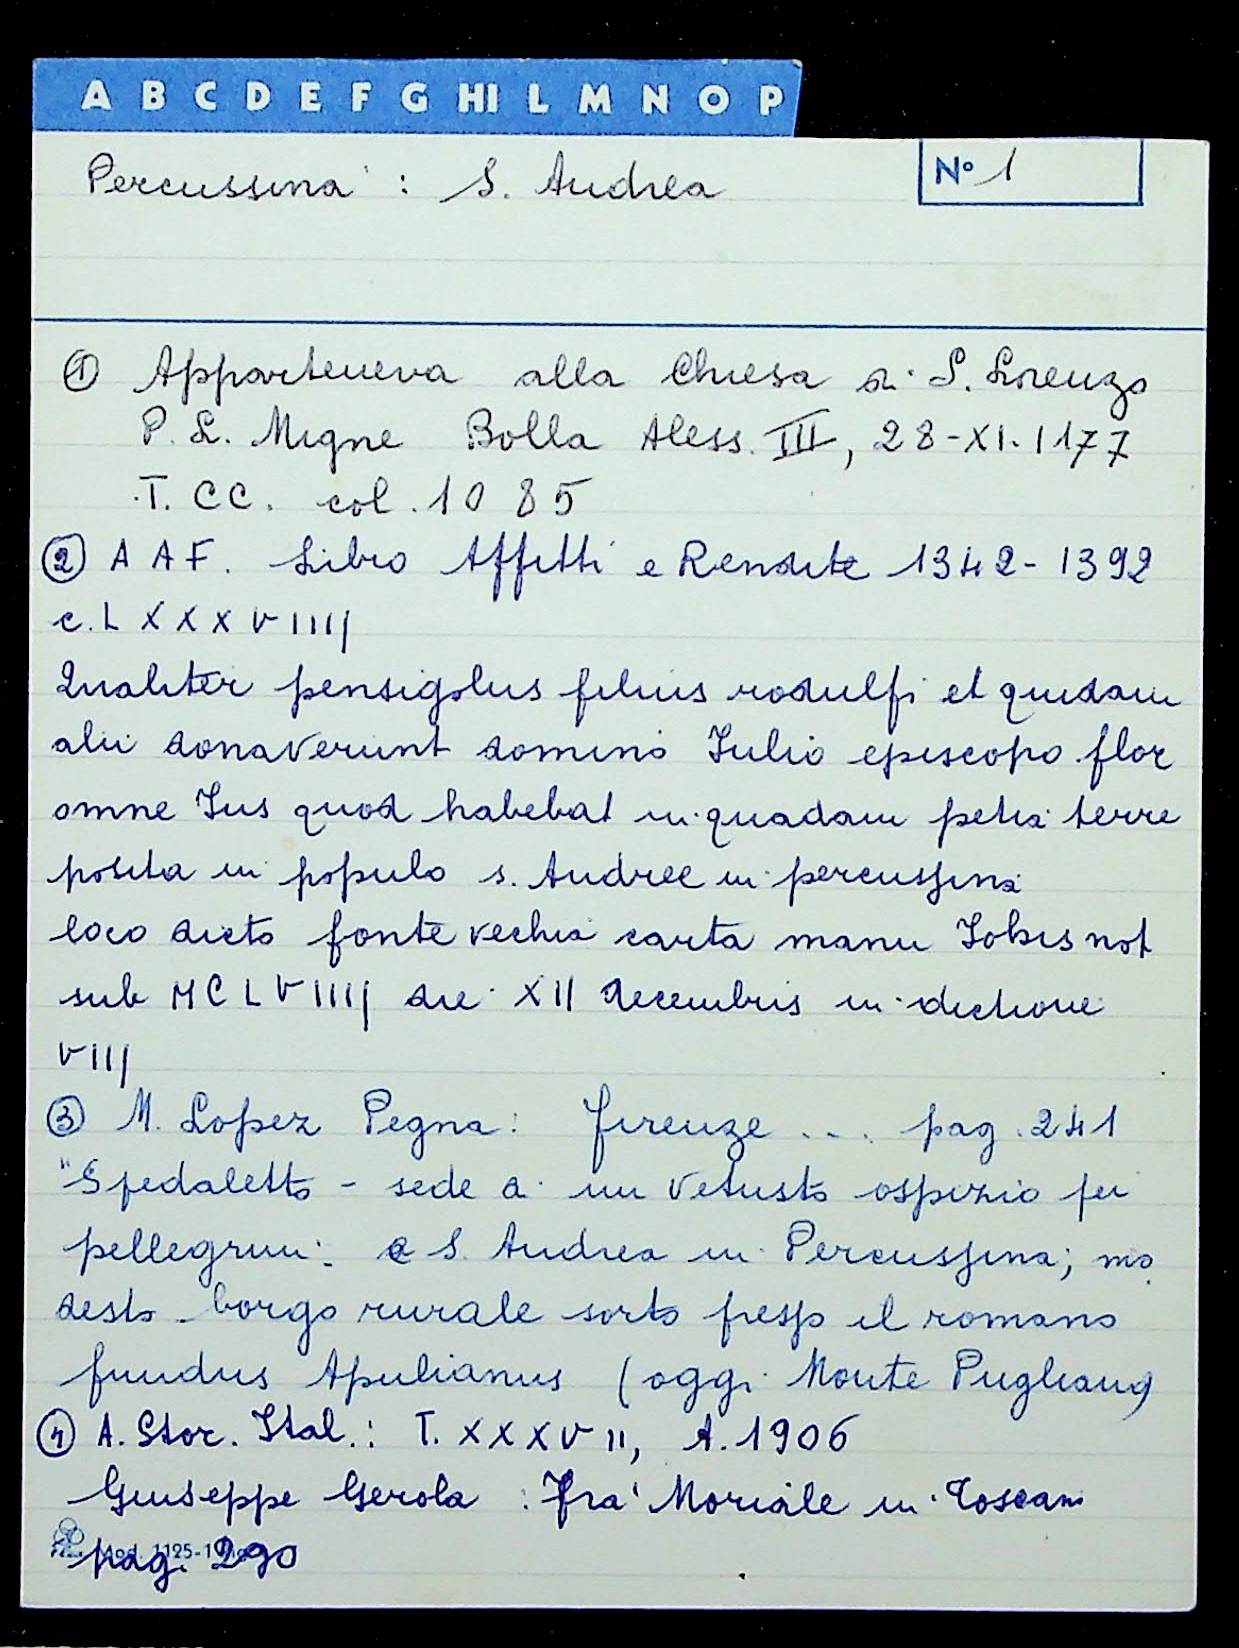 A B C D E F G HI L M N O P
Percussina : S. Andrea
N° 1
① Apparteneva alla Chiesa di S. Lorenzo
P. L. Migne Bolla Aless. III, 28-XI-1177
T. CC. col. 1085
② A A F. Libro Affitti e Rendite 1342-1392
c. L X X X V IIIJ
Qualiter pensigolus filius rodulfi et quidam
alii donaverunt domino Iulio episcopo flor
omne Ius quod habebat in quadam petia terre
posita in populo s. Andree in percussina
loco dicto fonte vechia carta manu Iohis not
sub M C L V IIIJ die XII decembris in dictione
VIIJ
③ M. Lopez Pegna: Firenze ... pag. 241
"Spedaletto - sede di un vetusto ospizio per
pellegrini e S. Andrea in Percussina; mo
desto borgo rurale sorto presso il romano
fundus Apulianus (oggi Monte Pugliano)
④ A. Stor. Ital.: T. XXXVII, A. 1906
Giuseppe Gerola : Fra Moriale in Toscana
pag. 290
Mod. 1125-1